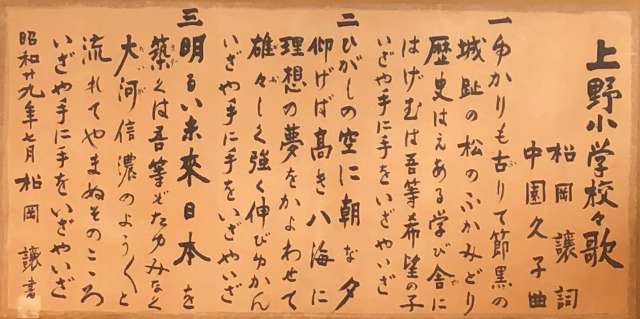 上野小学校々歌
松岡譲詞
中園久子曲
一ゆかりも古りて節黒の
城趾の松のふかみどり
歴史はえある学び舎に
はげむは吾等希望の子
いざや手に手をいざやいざ
二ひがしの空に朝な夕
仰げば高き八海に
理想の夢をかよわせて
雄々しく強く伸びゆかん
いざや手に手をいざやいざ
三明るい未來日本を
築くは吾等ぞたゆみなく
大河信濃のようくと
流れてやまぬそのこころ
いざや手に手をいざやいざ
昭和廿九年七月 松岡譲書